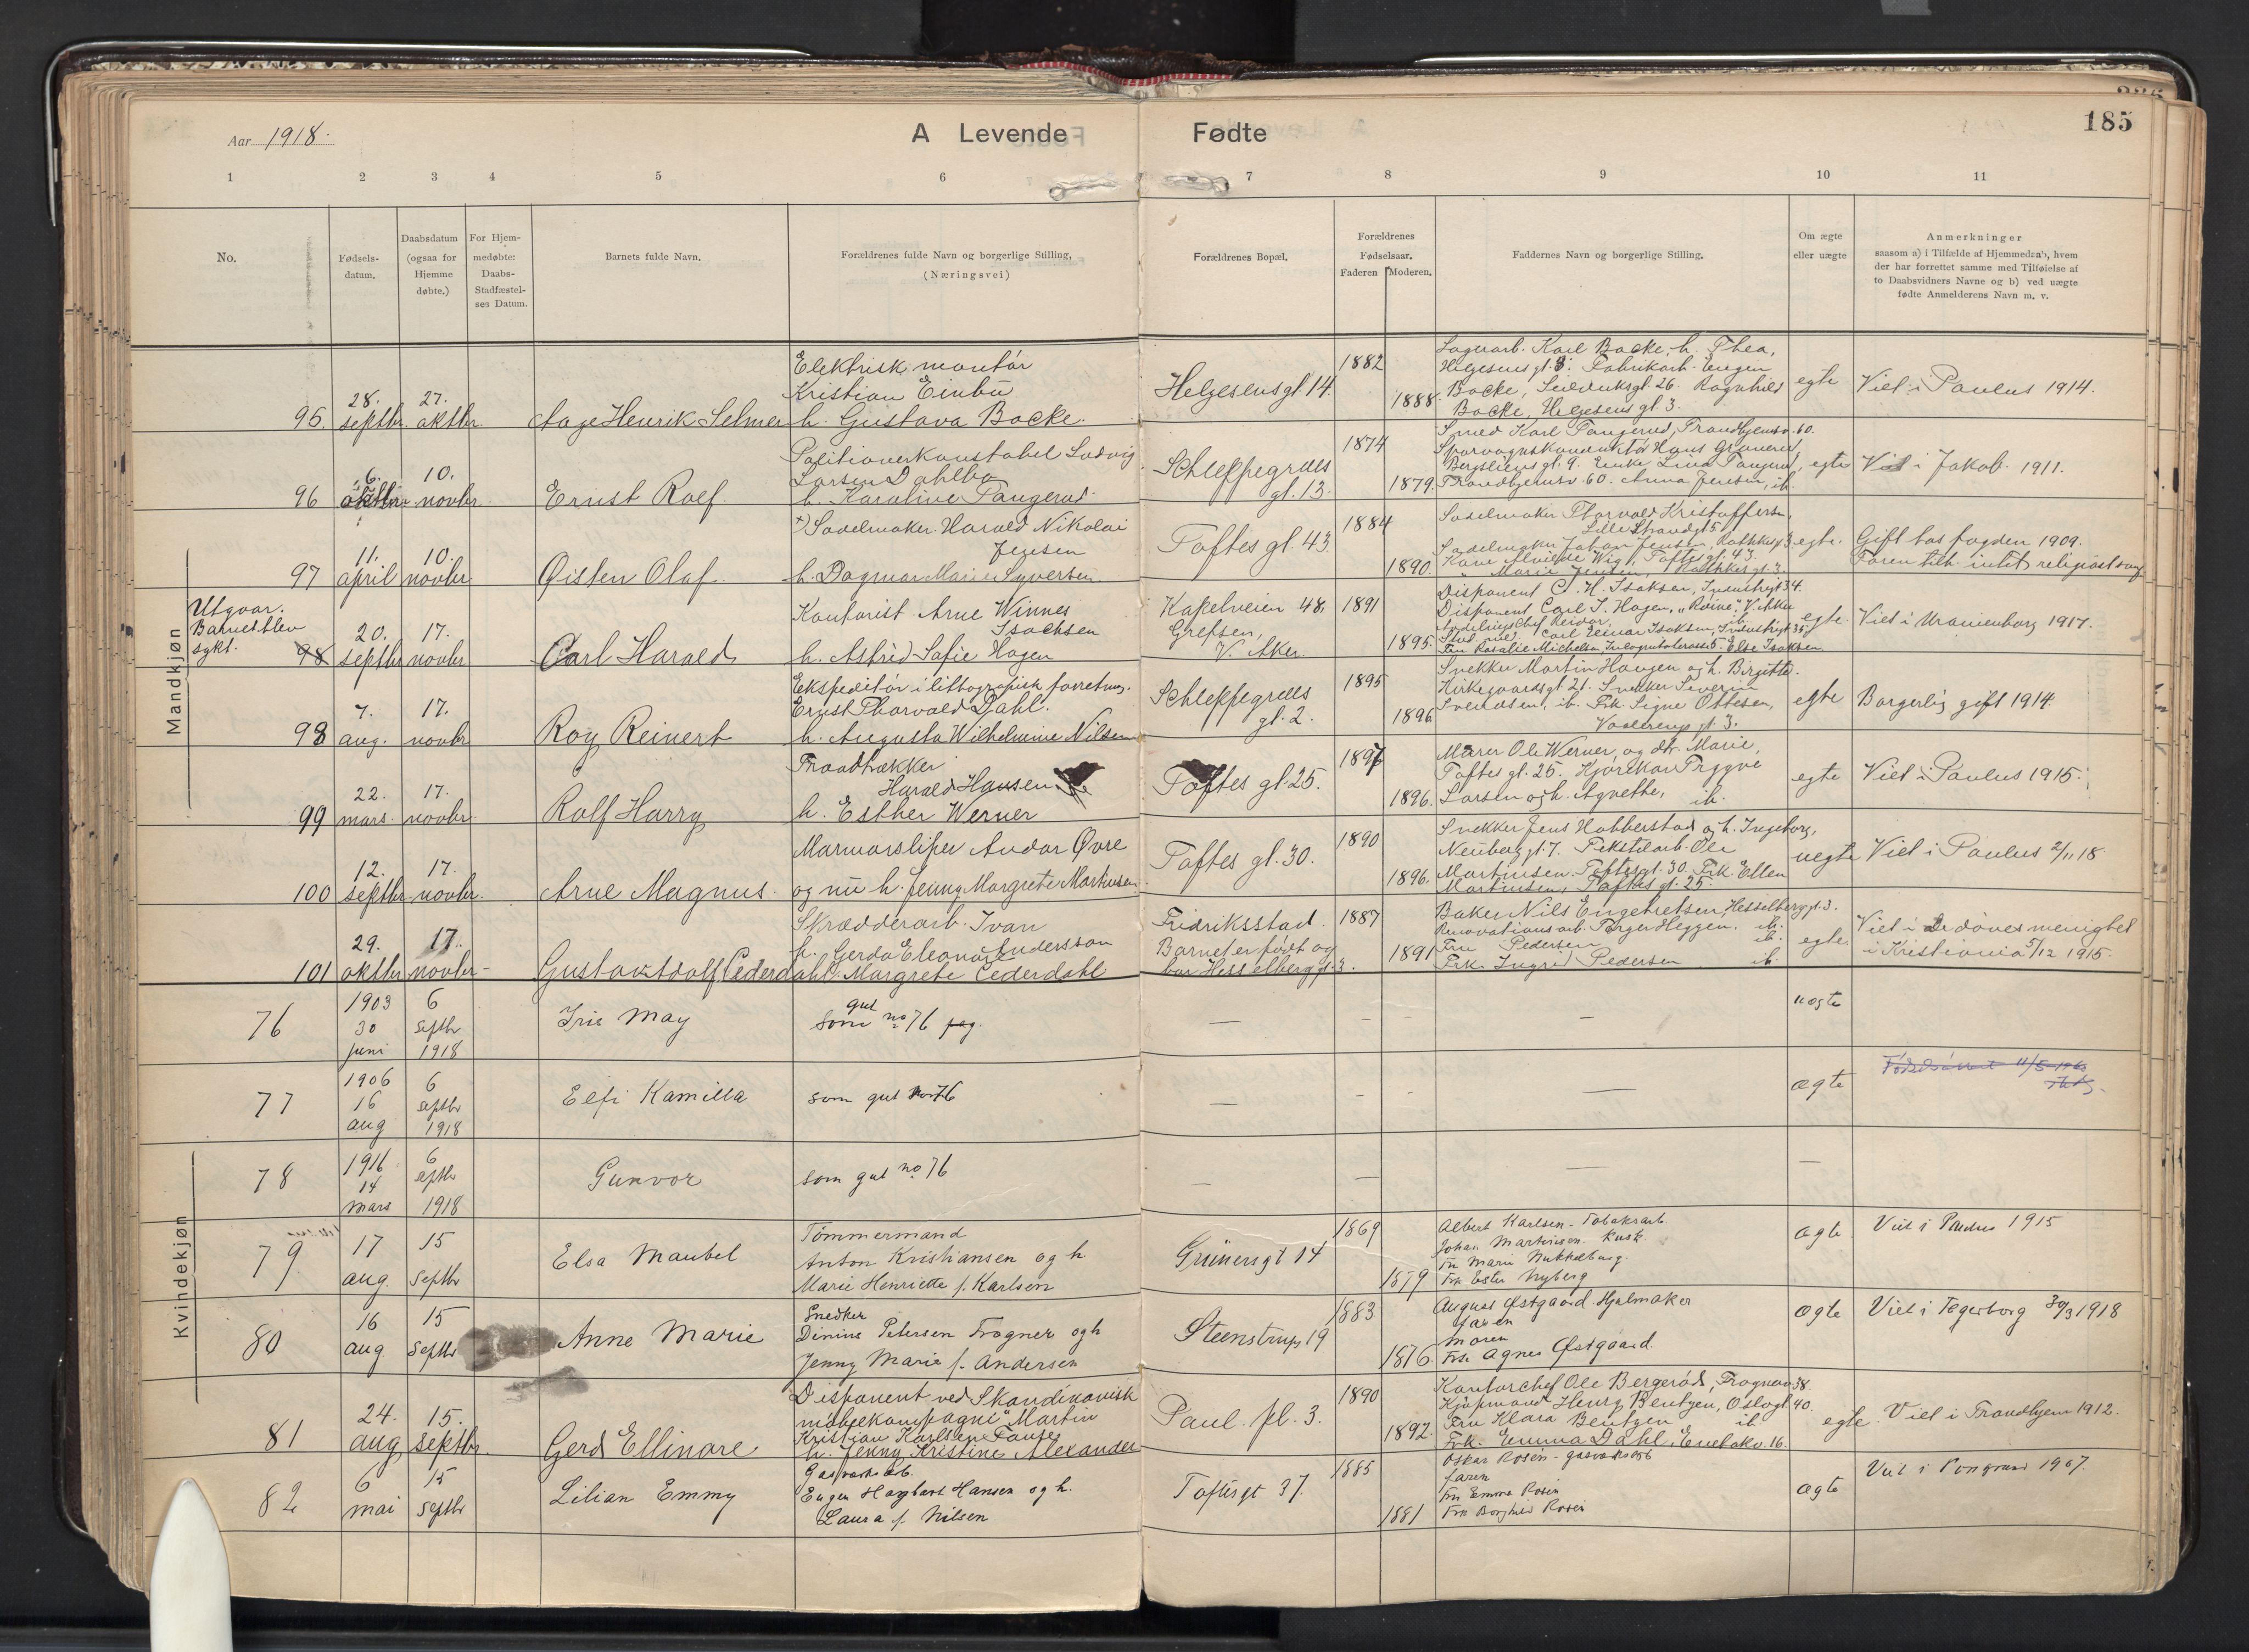 185
Aar 1918.
A Levende Fødte
1 2 3 4 5 6 7 8 9 10 11
No.
Fødsels-
datum.
Daabsdatum
(ogsaa for
Hjemme
døbte.)
For Hjem-
medøbte:
Daabs-
Stadfæstel-
ses Datum.
Barnets fulde Navn.
Forældrenes fulde Navn og borgerlige Stilling,
(Næringsvei)
Forældrenes Bopæl.
Forældrenes
Fødselsaar.
Faderen Moderen.
Faddernes Navn og borgerlige Stilling.
Om ægte
eller uægte
Anmerkninger
saasom a) i Tilfælde af Hjemmedaab, hvem
der har forrettet samme med Tilføielse af
to Daabsvidners Navne og b) ved uægte
fødte Anmelderens Navn m. v.
Mandkjøn
95.
28.
septbr.
27.
oktbr.
Aage Henrik Selmer
Elektrisk montör
Kristian Einbu
h. Gustava Backe.
Helgesensgt 14.
1882
1888.
Lagerarb. Karl Backe, h. Thea,
Helgesensgt. 3. Fabrikarb. Eugen
Backe, Seilduksgt. 26. Ragnhild
Backe, Helgesens gt. 3.
egte
Viet i Paulus 1914.
96
6.
oktbr.
10.
novbr.
Ernst Rolf.
Politioverkonstabel Ludvig
Larsen Dahlbo
h. Karoline Tangerud.
Schleppegrells
gt. 13.
1874
1879.
Smed Karl Tangerud, Trondhjemsv. 60.
Sporvognskonduktör Hans Granerud,
Bergsliens gt. 9. Enke Lina Tangerud,
Trondhjemsv. 60. Anna Jensen, ib.
egte
Viet i Jakob. 1911.
97
11.
april
10.
novbr.
Øisten Olaf.
x) Sadelmaker Harald Nikolai
Jensen
h. Dagmar Marie Syversen
Toftes gt. 43.
1884
1890.
Sadelmaker Thorvald Kristoffersen,
Lille Strandgt 5
egte.
Gift hos fogden 1909.
Faren tilh. intet religiøst
Utgaar.
Barnet blev
sykt.
98
20.
septbr
17.
novbr.
Carl Harald
Kontorist Arne Winnes
Isachsen
h. Astrid Sofie Hagen
Kapelveien 48,
Grefsen,
V. Aker.
1891
1895.
Disponent C. H. Isaksen, Industrigt 34.
Disponent Carl S. Hagen, "Roine", V. Aker
egte.
Viet i Uranienborg 1917.
98
7.
aug.
17.
novbr
Roy Reinert
Ekspeditör i littografisk forretning.
Ernst Thorvald Dahl.
h. Augusta Wilhelmine Nilsen
Schleppegrells
gt. 2.
1895
1896
Snekker Martin Haugen og h. Birgitte.
Kirkegaardsgt 21. Snekker Severin
Svendsen, ib. Frk. Signe Ottesen,
egte
Borgerlig gift 1914.
99
22.
mars.
17.
novbr.
Rolf Harry
Traadtrækker
Harald Hansen
h. Esther Werner
Toftes gt 25.
1897
1896.
Murer Ole Werner, og dtr. Marie,
Toftes gt. 25. Kjörekar Trygve
Larsen og h. Agnethe, ib.
egte
Viet i Paulus 1915.
100
12.
septbr.
17.
novbr.
Arne Magnus.
Marmorsliper Andor Øvre
og nu h. Jenny Margrete Martinsen.
Toftes gt. 30.
1890
1896.
Snekker Jens Habberstad og h. Ingeborg,
Neuberg gt. 7. Tekstilarb. Ole
Martinsen. Toftesgt. 30. Frk. Ellen
Martinsen, Toftes gt. 25.
uegte
Viet i Paulus 2/11 18
101
29.
oktbr
17.
novbr.
Gustav Adolf Cederdahl
Skrædderarb. Ivan
Andersson
h. Gerda Eleonora
Margrete Cederdahl
Fredriksstad.
Barnet er född og
bor Hesselberg gt. 3.
1887
1891
Baker Nils Engebretsen, Hesselberg gt. 3.
Renovationsarb. Torger Heggen. ib.
Fru Pedersen ib.
Frk. Ingrid Pedersen ib.
egte
Viet i De döves menighet
i Kristiania 5/12 1915.
Kvindekjøn
76
1903
30
juni
6
septbr
1918
Iris May
som gut no 76
uægte
77
1906
16
aug
6
septbr
1918
Elfi Kamilla
som gut no 76
ægte
78
1916
14
mars
6
septbr
1918
Gunvor
som gut no. 76
79
17
aug.
15
septbr
Elsa Maubel
Tömmermand
Anton Kristiansen og h
Marie Henriette f. Karlsen
Grünersgt 14
1869
1879
Albert Karlsen - Tobaksarb.
Johan Martinsen. Kusk.
Fru Marie
Frk Ester Nyberg
ægte
Viet i Paulus 1915
80
16
aug
15
septbr
Anne Marie
Snedker
Dinius Petersen Frogner og h
Jenny Marie f. Andersen
Steenstrups 19
1883
1876
August Østgaard. Hjulmaker
faren
moren
Frk Agnes Østgaard.
ægte
Viet i Fagerborg 30/3 1918
81
24.
aug
15.
septbr.
Gerd Ellinore
Disponent ved Skandinavisk
möbelkompagni Martin
Kristian Karlsen
h. Jenny Kristine Alexander
Paul. pl. 3.
1890
1892.
Kontorchef Ole Bergeröd, Frognerv 38.
Kjöpmand Henry Bentzen, Oslogt. 40.
Fru Klara Bentzen ib.
Frk. Emma Dahl, Enebakv. 16.
egte.
Viet i Trondhjem 1912.
82
6
mai
15
septbr
Lilian Emmy
Gasverksarb.
Eugen Hagbart Hansen og h.
Laura f. Nilsen
Toftesgt 37.
1885
1881
Oskar Rosén - gasverksarb
faren
Fru Emma Rosén
Fru Borghild Rosén
ægte
Viet i Porsgrund 1907.